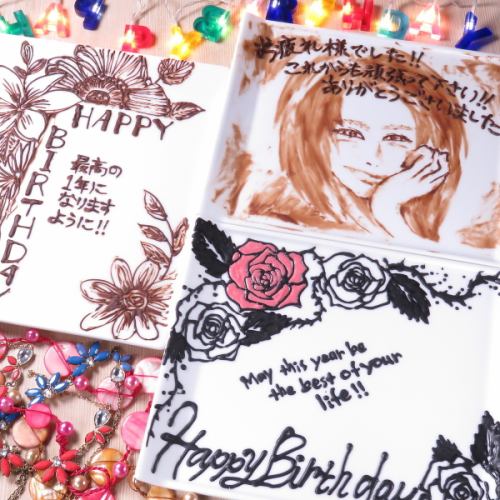 HAPPY
BIRTHDAY
最高の
1年に
なります
ように!!
お疲れ様でした!!
これからも頑張って下さい!!
ありがとうございました
May this year be
the best of your
life!!
Happy Birthday